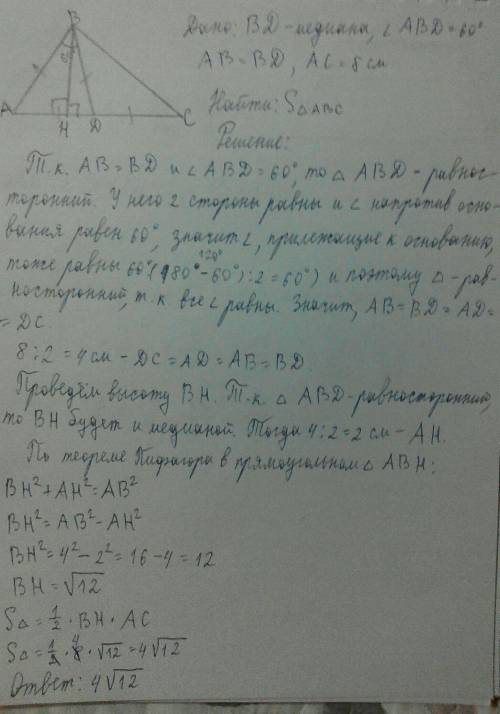 B
60°
A
H
D
C
Дано: BD - медиана, ∠ABD = 60°
AB = BD, AC = 8 см
Найти: S△ABC
Решение:
Т.к. AB = BD и ∠ABD = 60°, то △ABD - равнос-
торонний. У него 2 стороны равны и ∠ напротив осно-
вания равен 60°, значит ∠, прилежащие к основанию,
120°
тоже равны 60° (180° - 60°) : 2 = 60°) и поэтому △ - рав-
носторонний, т.к. все ∠ равны. Значит, AB = BD = AD =
= DC.
8 : 2 = 4 см - DC = AD = AB = BD.
Проведём высоту BH. Т.к. △ABD - равносторонний,
то BH будет и медианой. Тогда 4 : 2 = 2 см - AH.
По теореме Пифагора в прямоугольном △ABH:
BH² + AH² = AB²
BH² = AB² - AH²
BH² = 4² - 2² = 16 - 4 = 12
BH = √12
S△ = 1/2 · BH · AC
4
S△ = 1/2 · 8 · √12 = 4√12
Ответ: 4√12